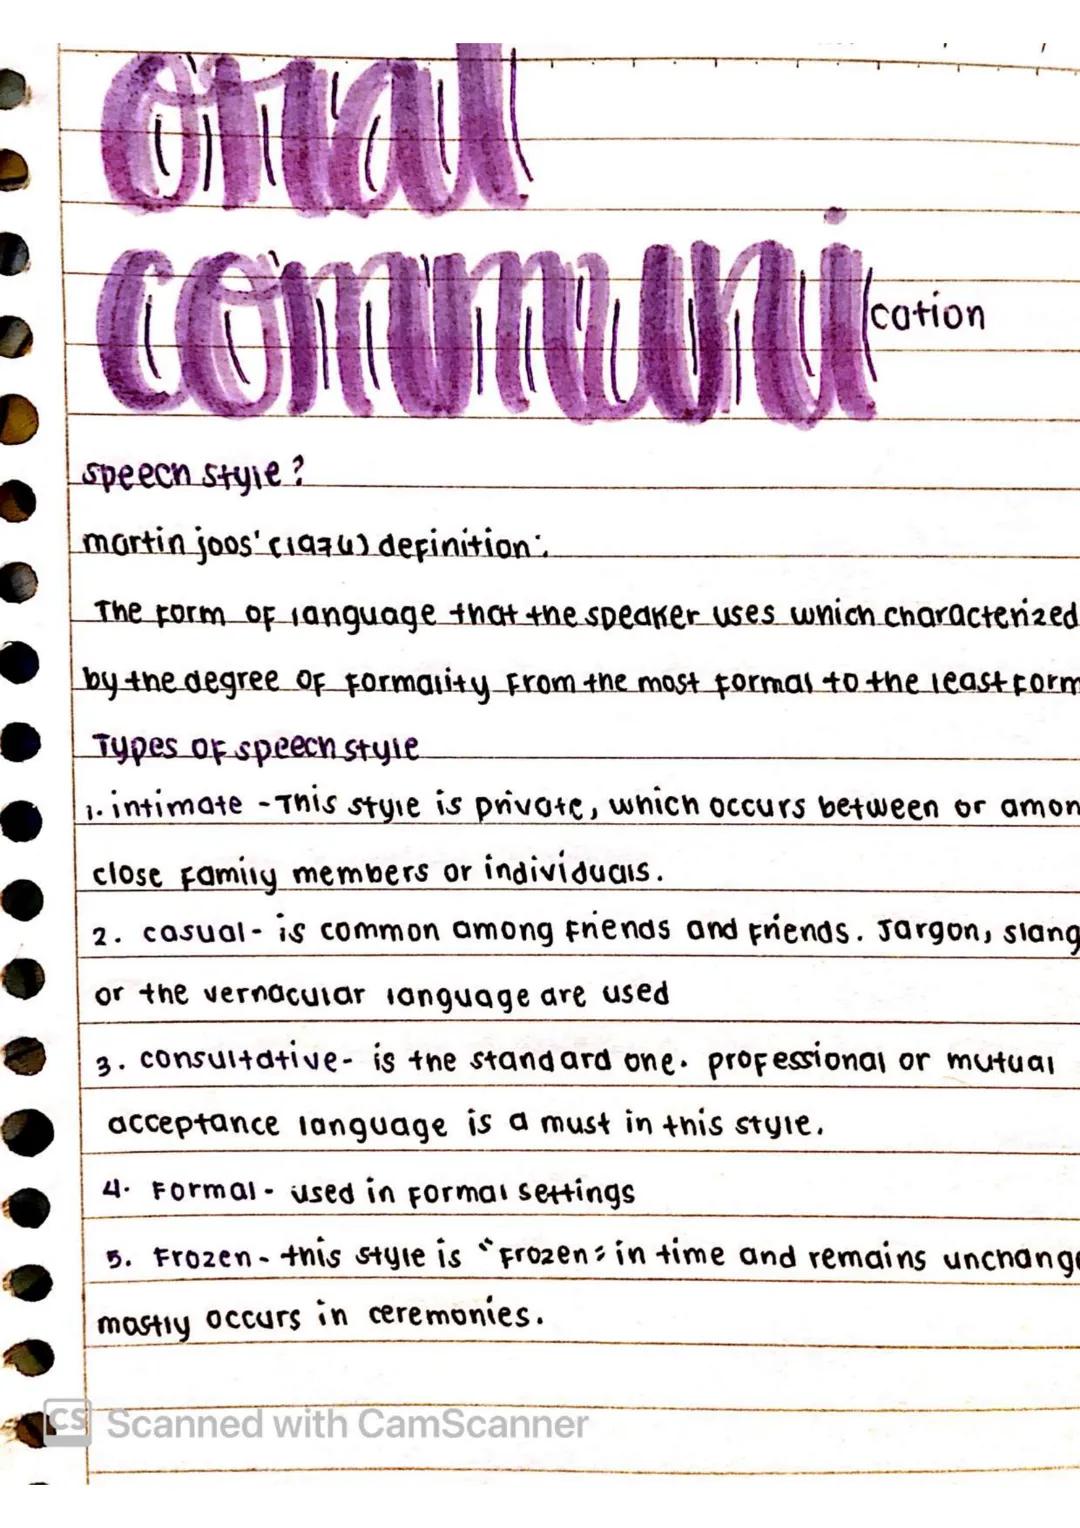 oral
communi
cation
speech style?
martin joos' (1974) definition:
The form of language that the speaker uses which characterized
by the degree of formality from the most formal to the least form
Types of speech style
1. intimate - This style is private, which occurs between or amon
close family members or individuals.
2. casual - is common among friends and friends. Jargon, slang
or the vernacular language are used
3. consultative - is the standard one. professional or mutual
acceptance language is a must in this style.
4. Formal - used in formal settings
5. Frozen - this style is "Frozen" in time and remains unchange
mostly occurs in ceremonies.
CS Scanned with CamScanner